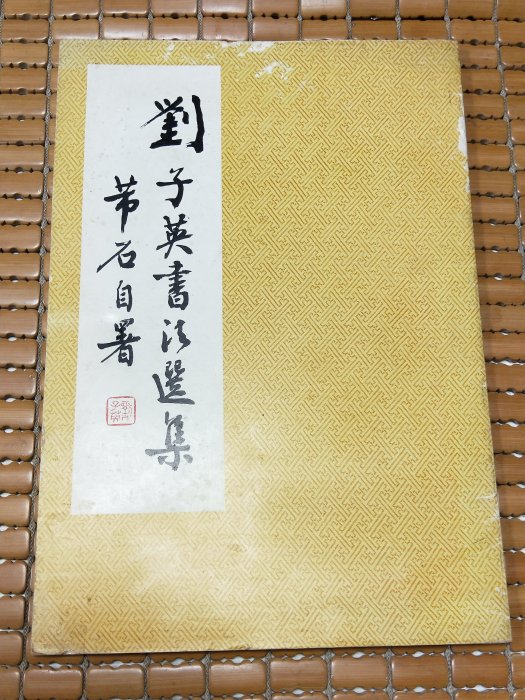 劉子英書法選集
芾石自署